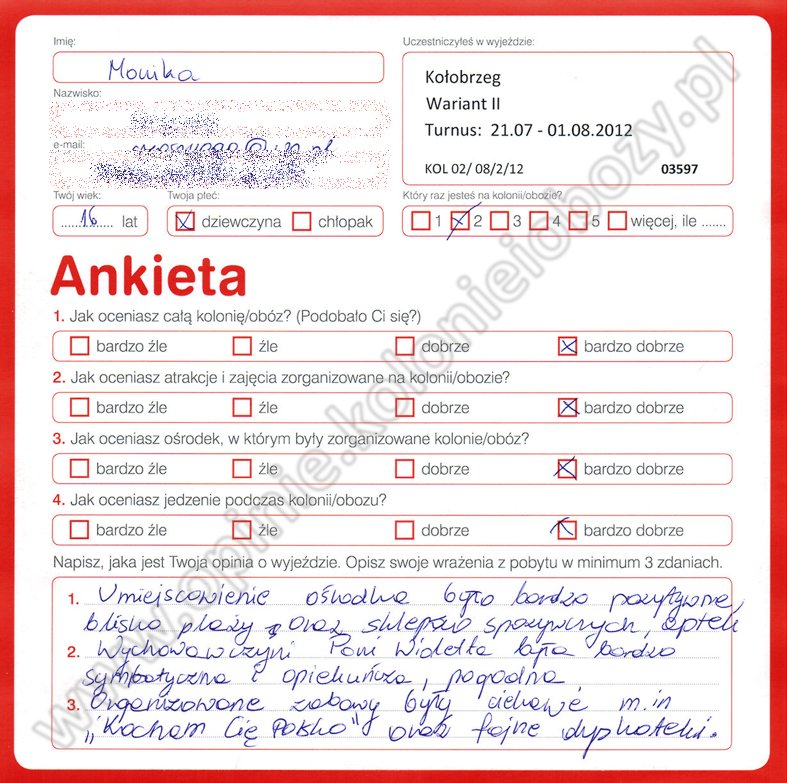 Imię:
Monika
Uczestniczyłeś w wyjeździe:
Kołobrzeg
Wariant II
Turnus: 21.07 - 01.08.2012
KOL 02/ 08/2/12 03597
Nazwisko:
e-mail:
Twój wiek:
16 lat
Twoja płeć:
dziewczyna chłopak
Który raz jesteś na kolonii/obozie?
1 2 3 4 5 więcej, ile .......
Ankieta
1. Jak oceniasz całą kolonię/obóz? (Podobało Ci się?)
bardzo źle źle dobrze bardzo dobrze
2. Jak oceniasz atrakcje i zajęcia zorganizowane na kolonii/obozie?
bardzo źle źle dobrze bardzo dobrze
3. Jak oceniasz ośrodek, w którym były zorganizowane kolonie/obóz?
bardzo źle źle dobrze bardzo dobrze
4. Jak oceniasz jedzenie podczas kolonii/obozu?
bardzo źle źle dobrze bardzo dobrze
Napisz, jaka jest Twoja opinia o wyjeździe. Opisz swoje wrażenia z pobytu w minimum 3 zdaniach.
1. Umiejscowienie ośrodka było bardzo pozytywne,
blisko plaży oraz sklepów spożywczych, aptek
2. Wychowawczyni Pani Wioletta była bardzo
sympatyczna i opiekuńcza, pogodna.
3. Organizowane zabawy były ciekawe m.in
"Kocham Cię Polsko" oraz fajne dyskoteki.
www.opinie.kolonieiobozy.pl